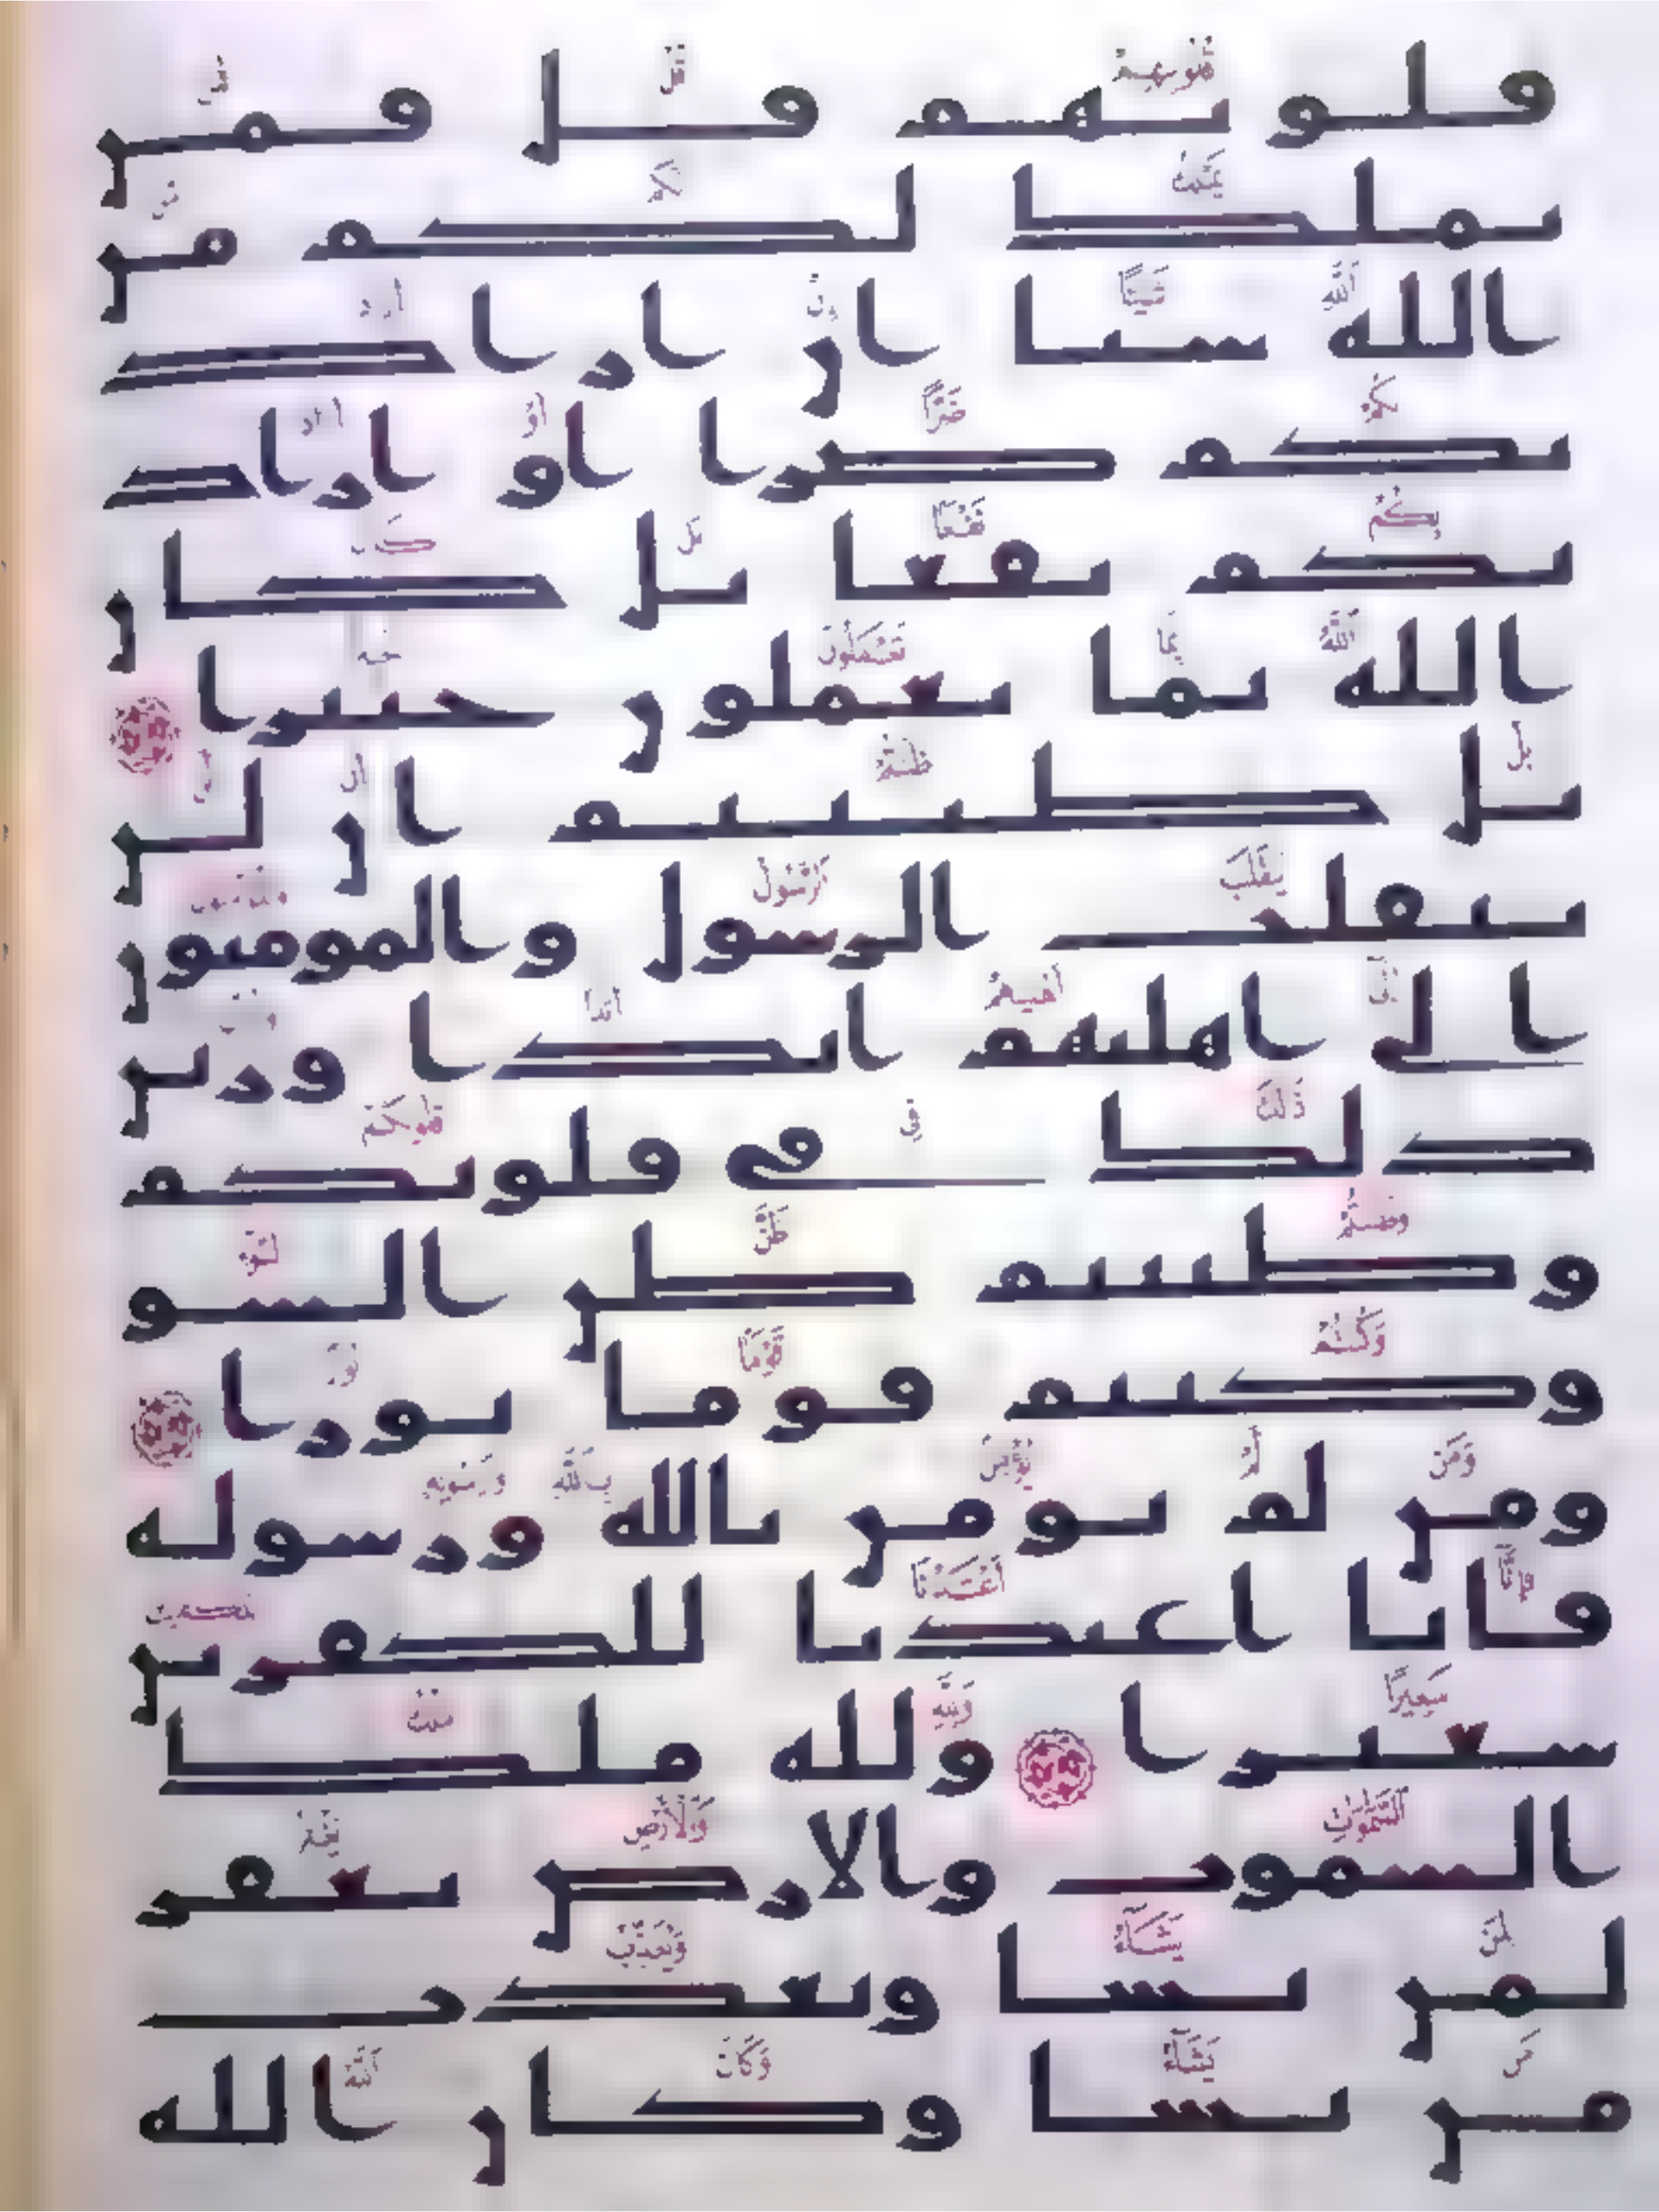 قلوبهم قل فمن
يملك لكم من
الله شيا ان اراد
بكم ضرا او اراد
بكم نفعا بل كان
الله بما تعملون خبيرا
بل ظننتم ان لن
ينقلب الرسول والمومنون
الى اهليهم ابدا وزين
ذلك في قلوبكم
وظننتم ظن السو
وكنتم قوما بورا
ومن لم يومن بالله ورسوله
فانا اعتدنا للكفرين
سعيرا ولله ملك
السموت والارض يغفر
لمن يشا ويعذب
من يشا وكان الله